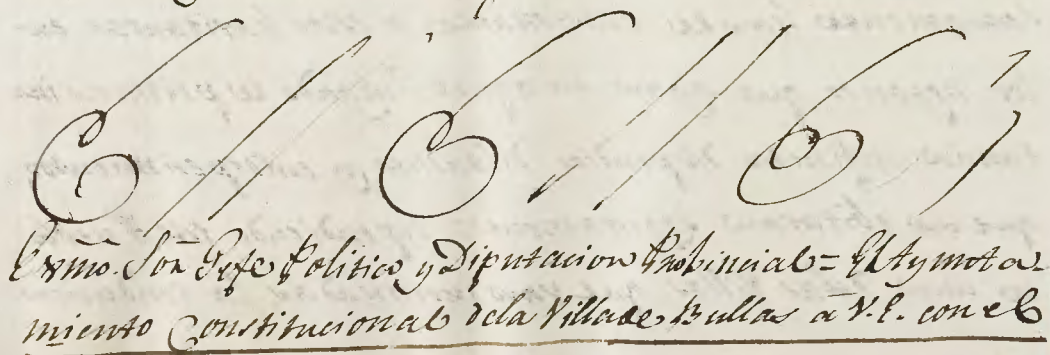 Exmo. Sõn Gefe Politico y Diputacion Probincial = El Aymota-
miento Constitucional dela Villa de Bullas a V.E. con el